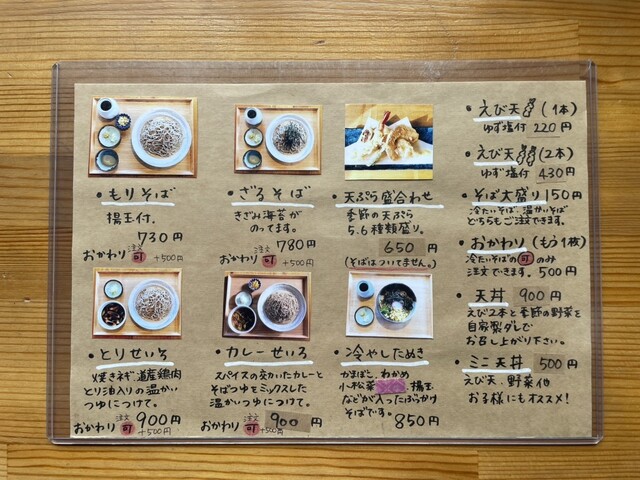 ・もりそば
揚玉付.
730円
おかわり 注文 可 +500円
・ざるそば
きざみ海苔が
のってます。
780円
おかわり 注文 可 +500円
天ぷら盛合わせ
季節の天ぷら
5.6種類盛り。
650円
(そばはついてません。)
・とりせいろ
焼きネギ、道産鶏肉
とり油入りの温かい
つゆにつけて。
900円
おかわり 注文 可 +500円
・カレーせいろ
スパイスの効いたカレーと
そばつゆをミックスした
温かいつゆにつけて。
900円
おかわり 注文 可 +500円
・冷やしたぬき
かまぼこ、わかめ
小松菜、揚玉
などが入ったぶっかけ
そばです。850円
・えび天(1本)
ゆず塩付 220円
・えび天(2本)
ゆず塩付 430円
・そば大盛り 150円
冷たいそば、温かいそば
どちらもご注文できます。
・おかわり(もう1枚)
冷たいそばの可のみ
注文できます。500円
・天丼 900円
えび2本と季節の野菜を
自家製ダレで
お召し上がり下さい。
・ミニ天丼 500円
えび天、野菜他
お子様にもオススメ!